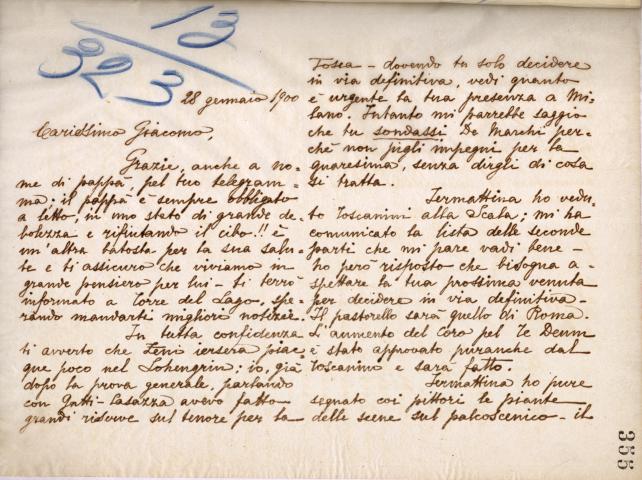 28 gennaio 1900
Carissimo Giacomo,
Grazie, anche a no-
me di pappà, pel tuo telegram-
ma; il pappà è sempre obbligato
a letto, in uno stato di grande de-
bolezza e rifiutando il cibo!! è
un'altra batosta per la sua salu-
te e ti assicuro che viviamo in
grande pensiero per lui - ti terrò
informato a Torre del Lago, spe-
rando mandarti migliori notizie.
In tutta confidenza
ti avverto che Zeni iersera piac-
que poco nel Lohengrin; io, già
dopo la prova generale, parlando
con Gatti-Casazza avevo fatto
grandi riserve sul tenore per la
Tosca - dovendo tu solo decidere
in via definitiva, vedi quanto
è urgente la tua presenza a Mi-
lano. Intanto mi parrebbe saggio
che tu sondassi De Marchi per-
chè non pigli impegni per la
quaresima, senza dirgli di cosa
si tratta.
Iermattina ho vedu-
to Toscanini alla Scala; mi ha
comunicato la lista delle seconde
parti che mi pare vadi bene -
ho però risposto che bisogna a-
spettare la tua prossima venuta
per decidere in via definitiva -
Il pastorello sarà quello di Roma.
L'aumento del Coro pel Te Deum
è stato approvato puranche dal
Toscanini e sarà fatto.
Iermattina ho pure
segnato coi pittori le piante
delle scene sul palcoscenico - il
355